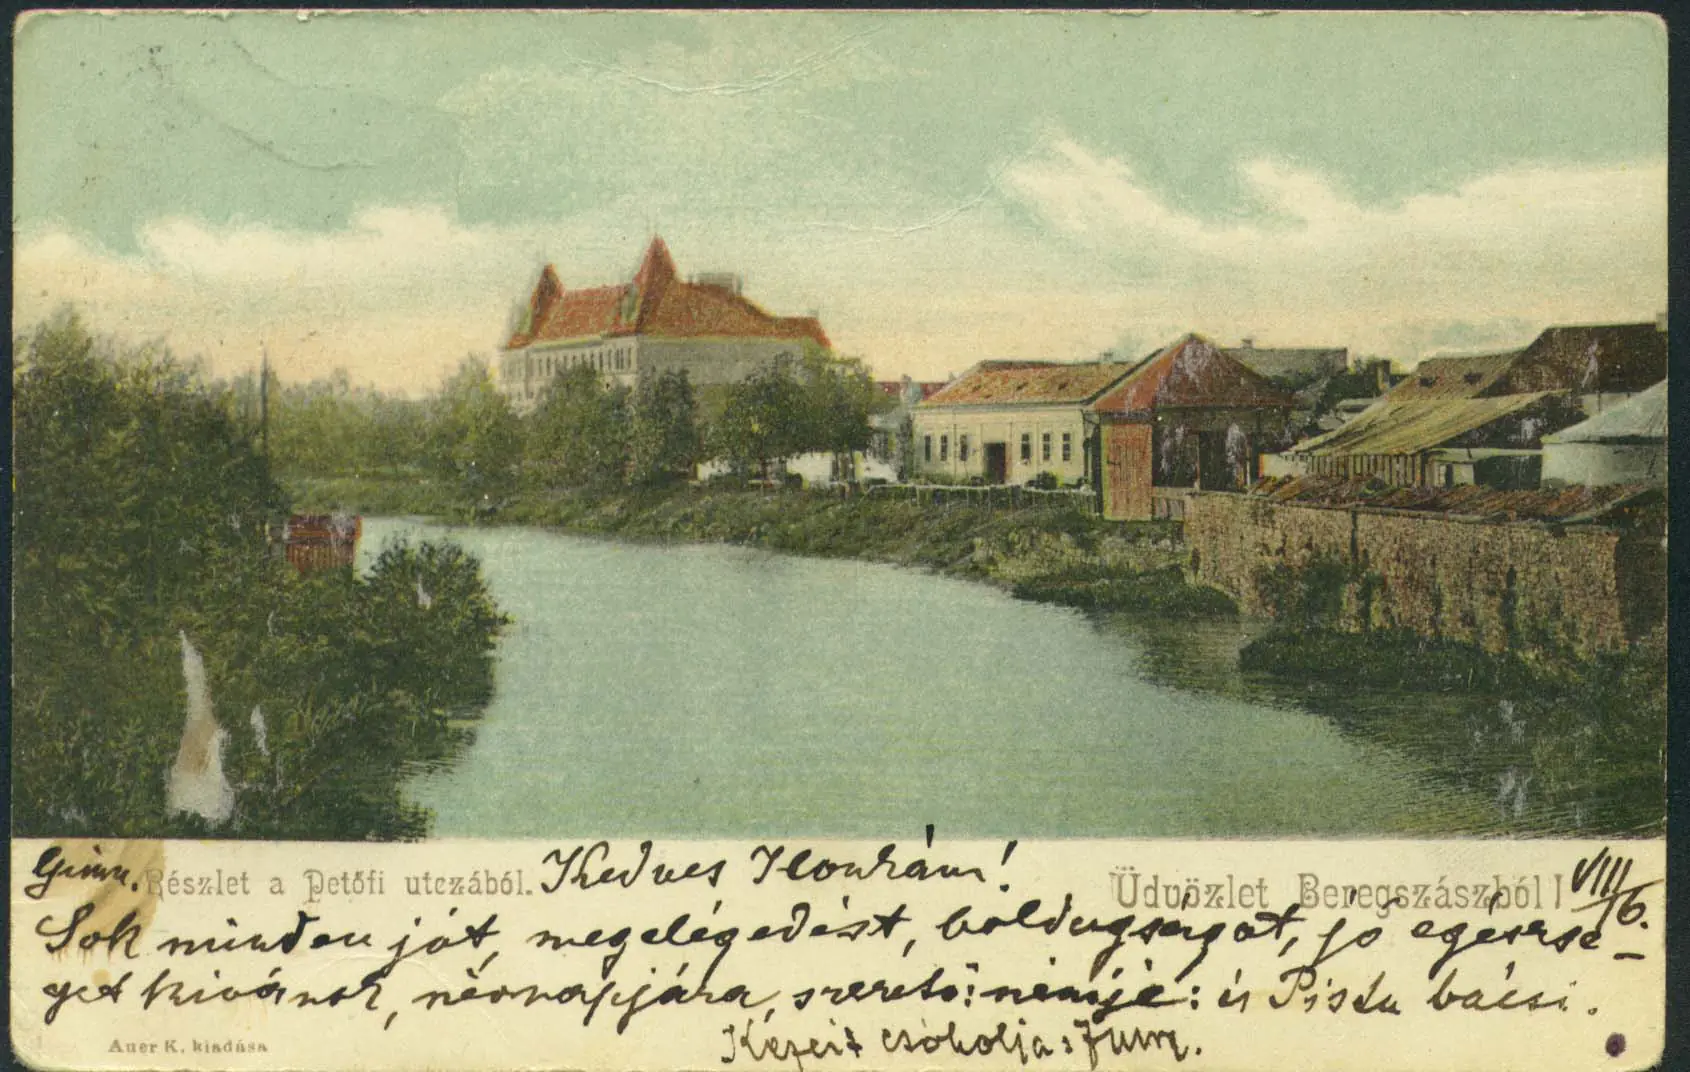 Gimn. Részlet a Petőfi utczából. Kedves Ilonkám! Üdvözlet Beregszászból! VIII/16.
Sok minden jót, megelégedést, boldugságot, jó egészsé-
get kivánok, névnapjára, szerető: nénéje: és Pista bácsi.
Kezeit csókolja:
Auer K. kiadása